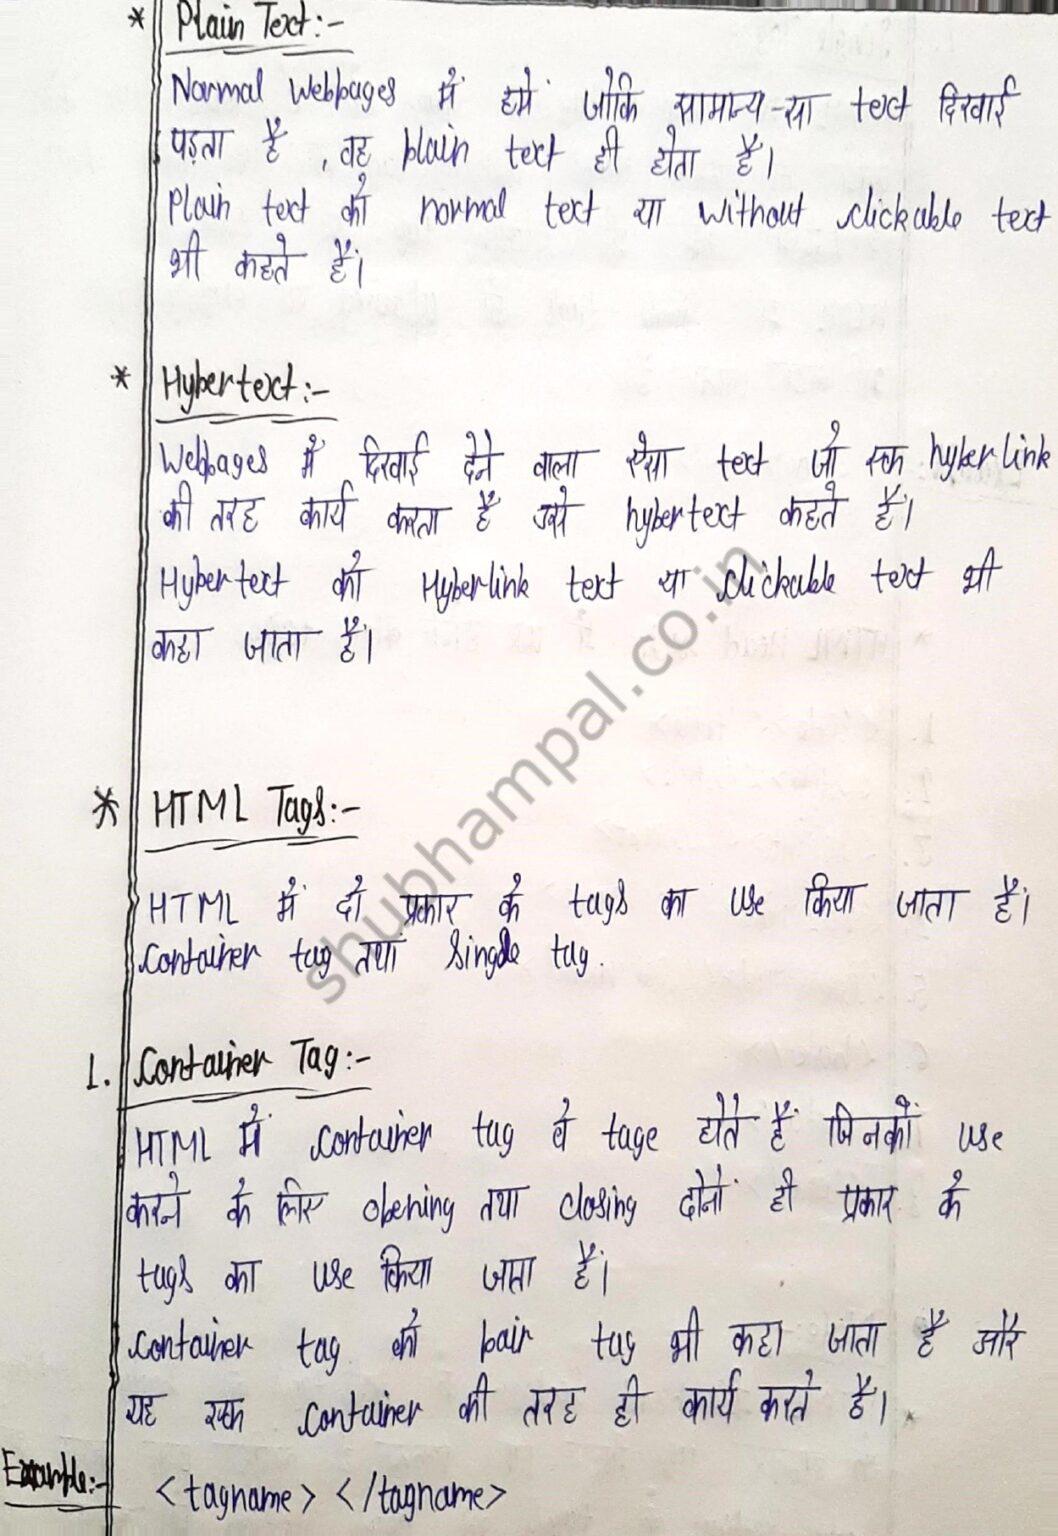 * Plain Text:-
Normal Webpages में हमें जोकि सामान्य-सा text दिखाई
पड़ता है , वह plain text ही होता है।
Plain text को normal text या without clickable text
भी कहते हैं।
* Hypertext:-
Webpages में दिखाई देने वाला ऐसा text जो एक hyperlink
की तरह कार्य करता है उसे hypertext कहते हैं।
Hypertext को Hyperlink text या clickable text भी
कहा जाता है।
* HTML Tags:-
HTML में दो प्रकार के tags का use किया जाता है।
Container tag तथा Single tag.
1. Container Tag:-
HTML में container tag वे tage होते हैं जिनको use
करने के लिए opening तथा closing दोनों ही प्रकार के
tags का use किया जाता है।
Container tag को pair tag भी कहा जाता है और
यह एक container की तरह ही कार्य करते है।
Example:- <tagname> </tagname>
shubhampal.co.in